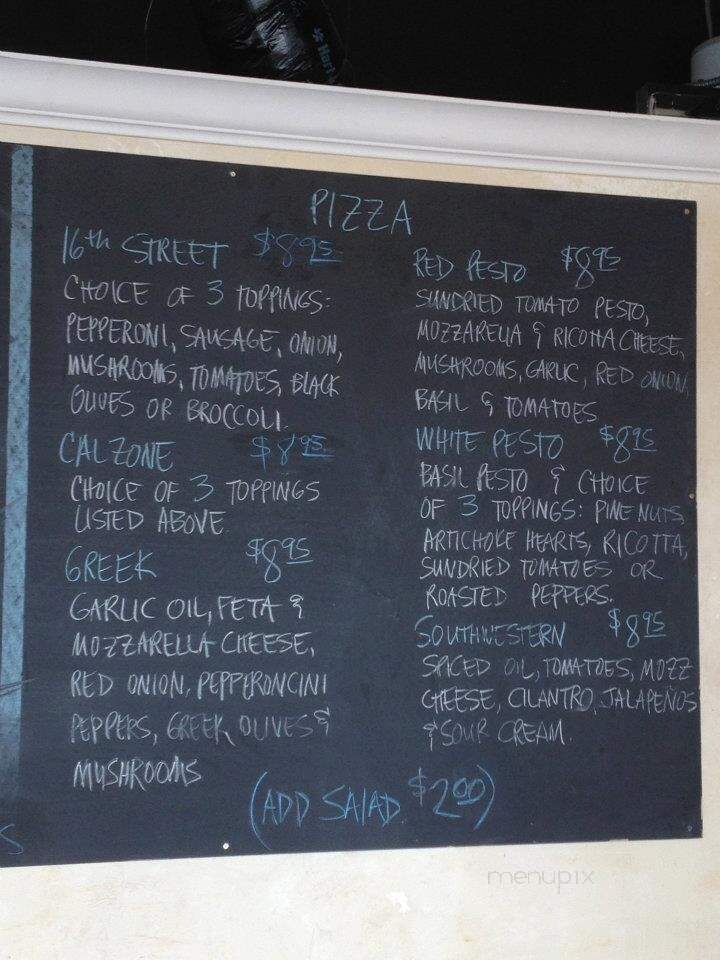 PIZZA
16th STREET $8.95
CHOICE OF 3 TOPPINGS:
PEPPERONI, SAUSAGE, ONION,
MUSHROOMS, TOMATOES, BLACK
OLIVES OR BROCCOLI.
CALZONE $8.95
CHOICE OF 3 TOPPINGS
LISTED ABOVE
GREEK $8.95
GARLIC OIL, FETA &
MOZZARELLA CHEESE,
RED ONION, PEPPERONCINI
PEPPERS, GREEK OLIVES &
MUSHROOMS
RED PESTO $8.95
SUNDRIED TOMATO PESTO,
MOZZARELLA & RICOTTA CHEESE,
MUSHROOMS, GARLIC, RED ONION,
BASIL & TOMATOES
WHITE PESTO $8.95
BASIL PESTO & CHOICE
OF 3 TOPPINGS: PINE NUTS,
ARTICHOKE HEARTS, RICOTTA,
SUNDRIED TOMATOES OR
ROASTED PEPPERS.
SOUTHWESTERN $8.95
SPICED OIL, TOMATOES, MOZZ
CHEESE, CILANTRO, JALAPEÑOS
& SOUR CREAM.
(ADD SALAD $2.00)
S
menupix